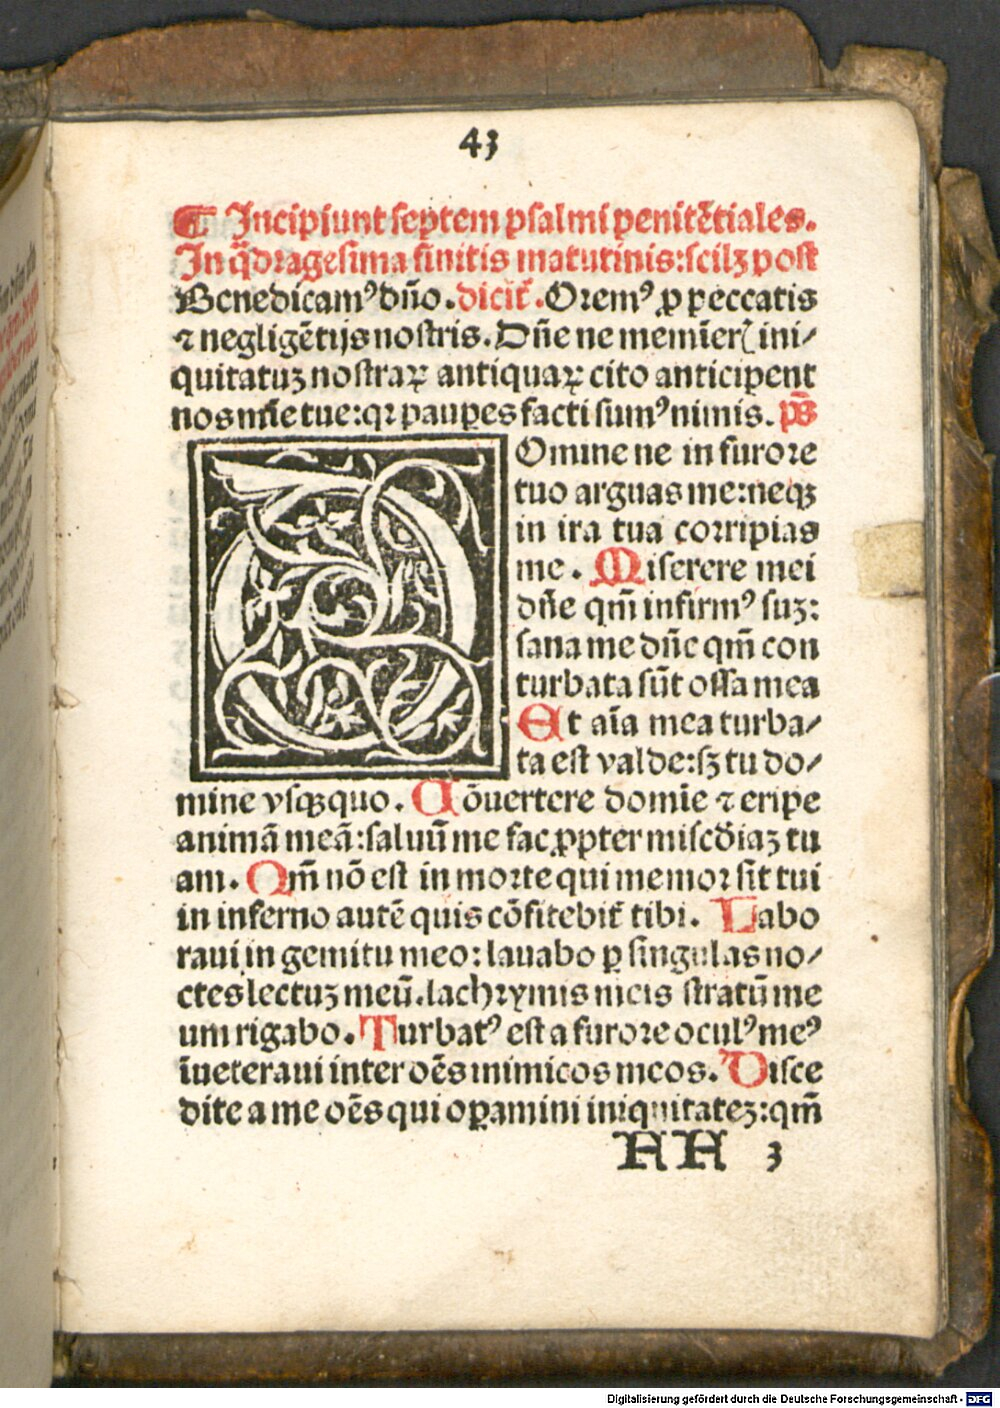 43
¶ Incipiunt septem psalmi penitẽtiales.
In q̃dragesima finitis matutinis: scilꝫ post
Benedicamꝰ dño. dicit᷑. Oremꝰ ꝓ peccatis
⁊ negligẽtijs nostris. Dñe ne memĩerꝭ ini/
quitatuꝫ nostraꝝ antiquaꝝ cito anticipent
nos mĩe tue: qꝛ pauꝑes facti sumꝰ nimis. ps̃
Omine ne in furore
tuo arguas me: neqꝫ
in ira tua corripias
me. Miserere mei
dñe qm̃ infirmꝰ suꝫ:
sana me dñe qm̃ con
turbata sũt ossa mea
Et aĩa mea turba/
ta est valde: sꝫ tu do/
mine vsqꝫquo. Cõuertere domĩe ⁊ eripe
animã meã: saluũ me fac ꝓpter misc̃diaꝫ tu
am. Qm̃ nõ est in morte qui memor sit tui
in inferno autẽ quis cõfitebit᷑ tibi. Labo
raui in gemitu meo: lauabo ꝑ singulas no/
ctes lectuꝫ meũ. lachrymis meis stratũ me
um rigabo. Turbatꝰ est a furore oculꝰ meꝰ
ĩueteraui inter oẽs inimicos meos. Disce
dite a me oẽs qui oꝑamini iniquitateꝫ: qm̃
AA 3
Digitalisierung gefördert durch die Deutsche Forschungsgemeinschaft - DFG